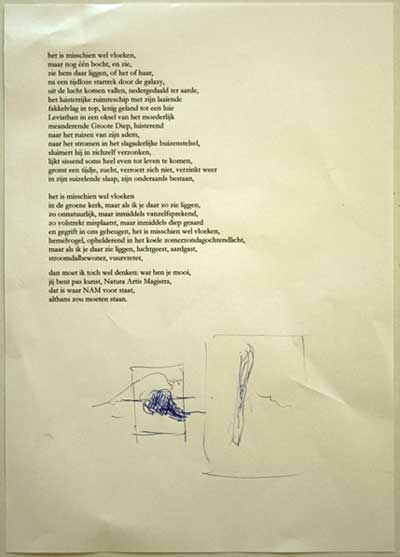 het is misschien wel vloeken,
maar nog één bocht, en zie,
zie hem daar liggen, of het of haar,
na een tijdloze startrek door de galaxy,
uit de lucht komen vallen, nedergedaald ter aarde,
het luisterrijke ruimteschip met zijn laaiende
fakkelvlag in top, lenig geland tot een luie
Leviathan in een oksel van het moederlijk
meanderende Groote Diep, luisterend
naar het ruizen van zijn adem,
naar het stromen in het slagaderlijke buizenstelsel,
sluimert hij in zichzelf verzonken,
lijkt sissend soms heel even tot leven te komen,
gromt een tijdje, zucht, verroert zich niet, verzinkt weer
in zijn suizelende slaap, zijn onderaards bestaan,
het is misschien wel vloeken
in de groene kerk, maar als ik je daar zo zie liggen,
zo onnatuurlijk, maar inmiddels vanzelfsprekend,
zo volstrekt misplaatst, maar inmiddels diep geaard
en gegrift in ons geheugen, het is misschien wel vloeken,
hemelvogel, ophelderend in het koele zomerzondagochtendlicht,
maar als ik je daar zie liggen, luchtgeest, aardgast,
stroomdalbewoner, vuurvreter,
dan moet ik toch wel denken: wat ben je mooi,
jij bent pas kunst, Natura Artis Magistra,
dat is waar NAM voor staat,
althans zou moeten staan.